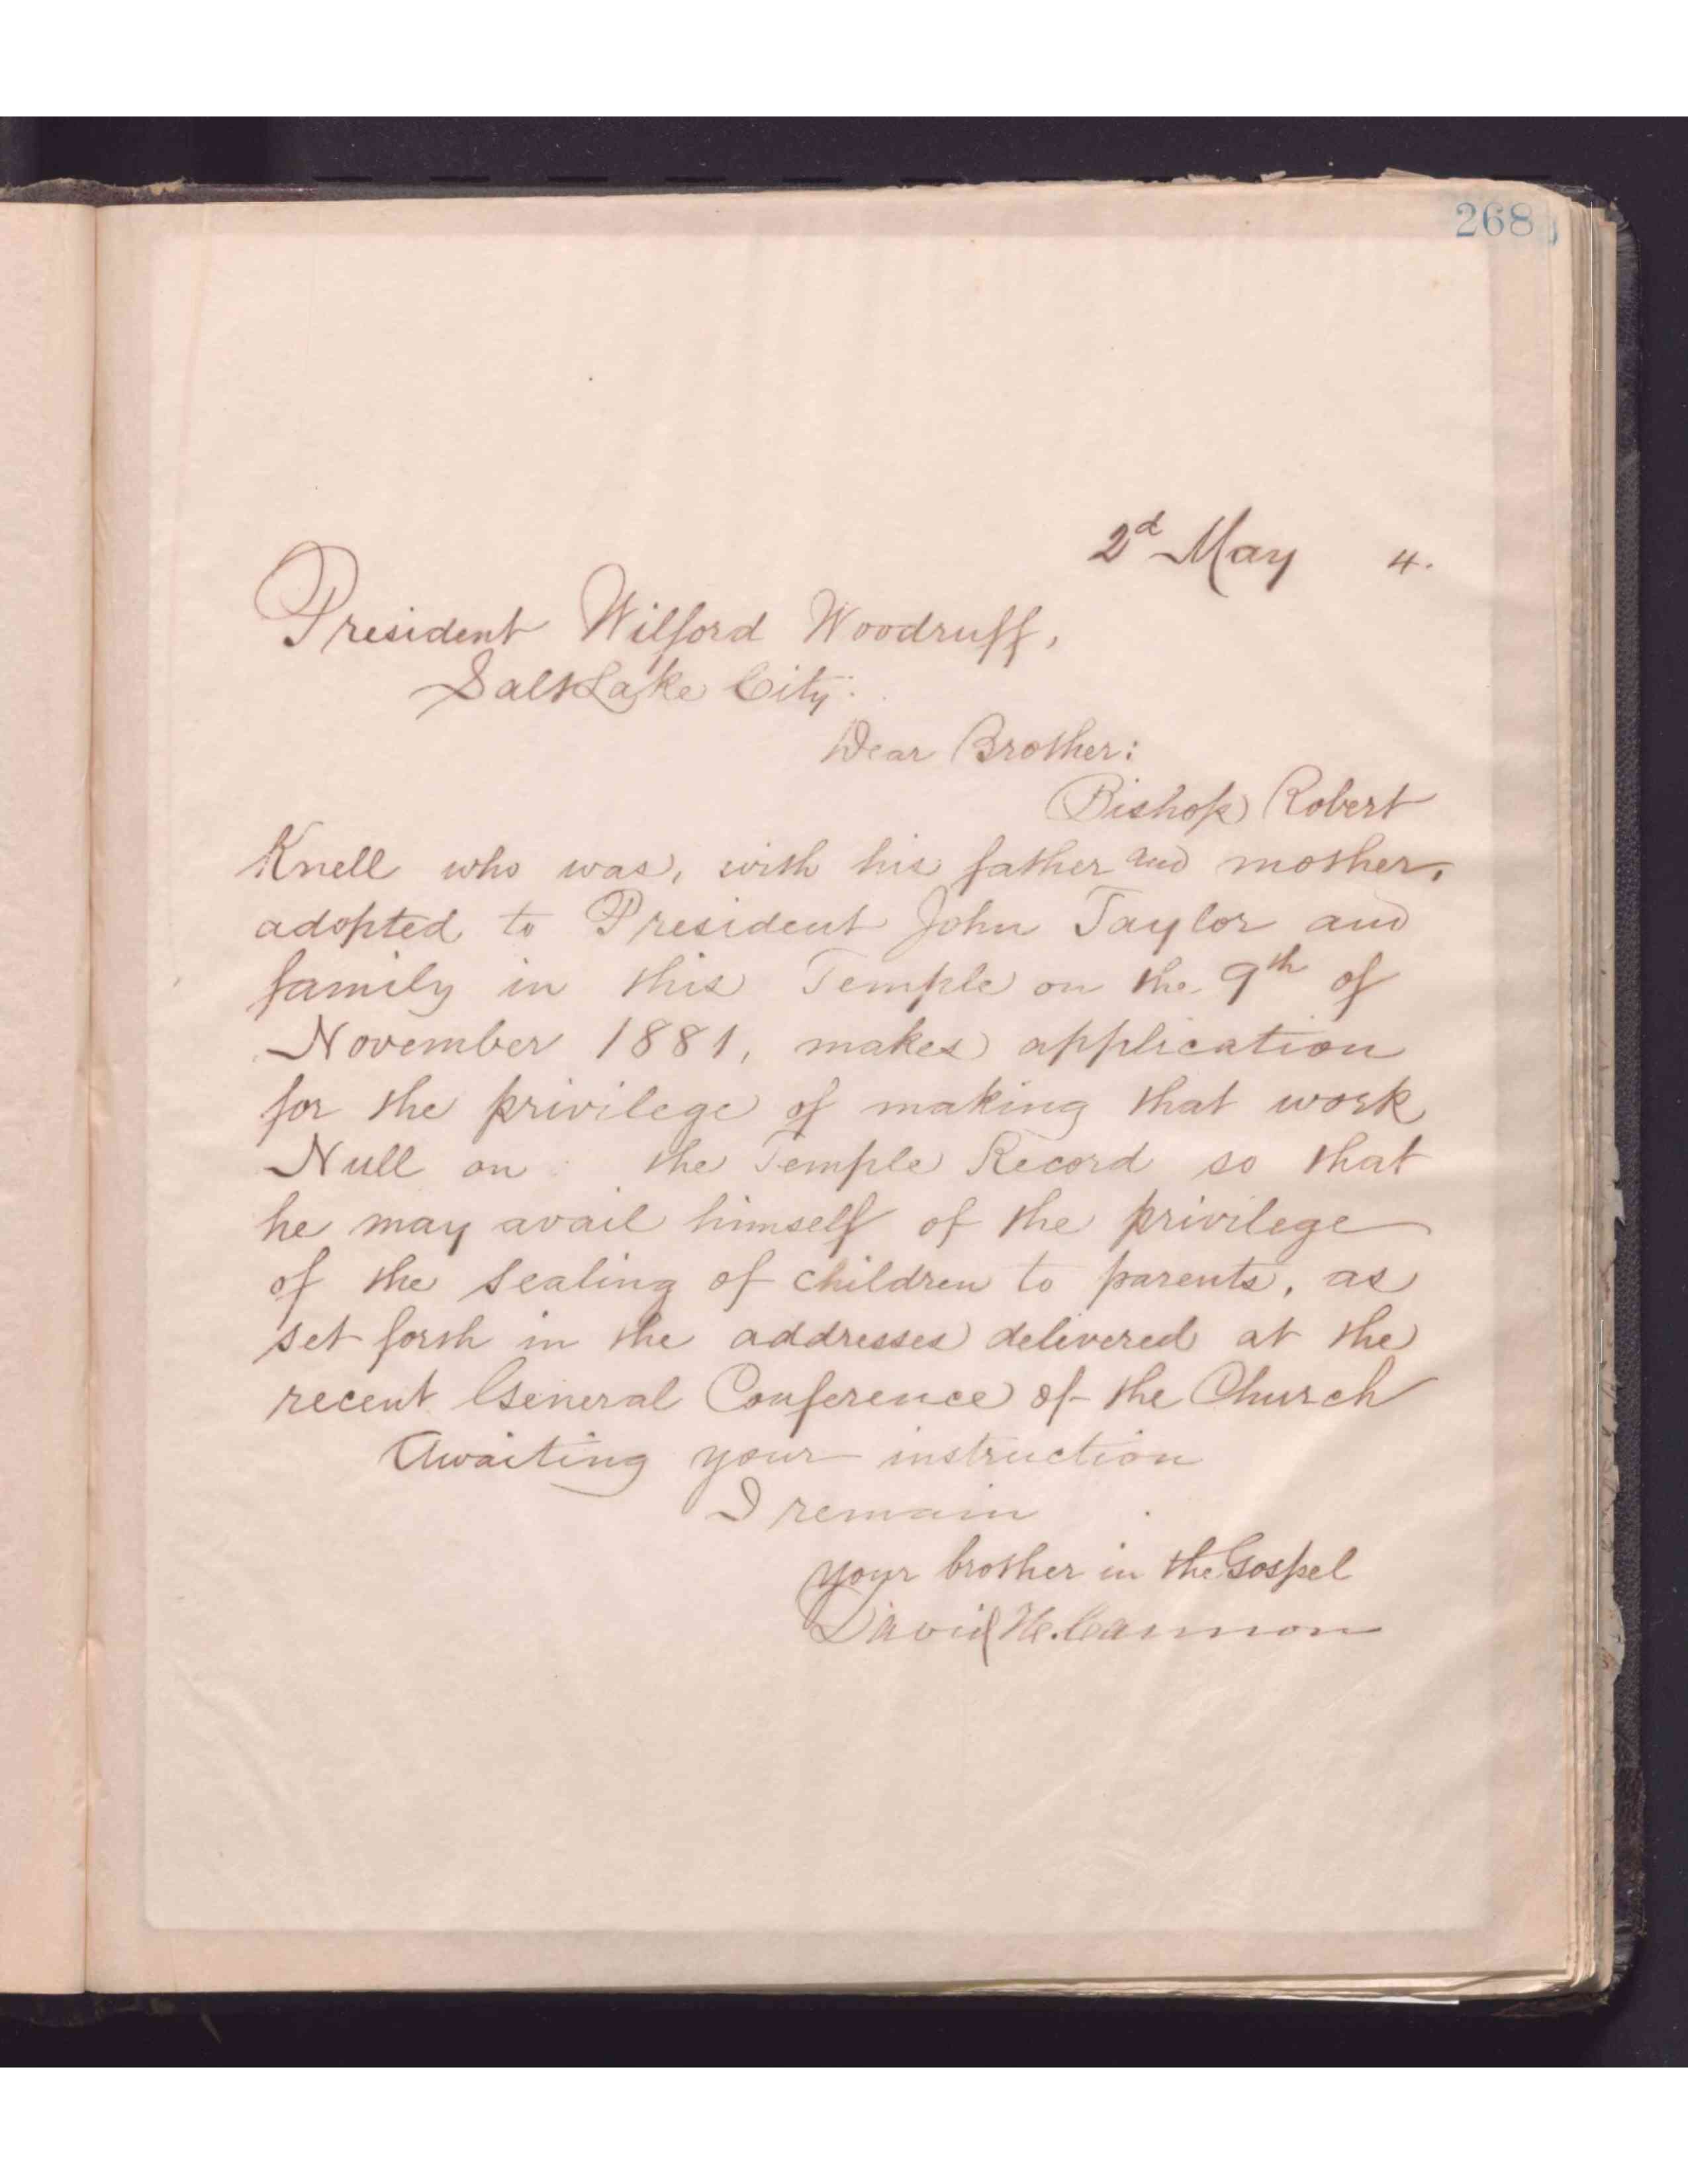 268
2d May 4.
President Wilford Woodruff,
Salt Lake City.
Dear Brother:
Bishop Robert
Knell who was, with his father and mother,
adopted to President John Taylor and
family in this Temple on the 9th of
November 1881, makes application
for the privilege of making that work
Null on the Temple Record so that
he may avail himself of the privilege
of the sealing of children to parents, as
set forth in the addresses delivered at the
recent General Conference of the Church
Awaiting your instruction
I remain
your brother in the Gospel
David H. Cannon